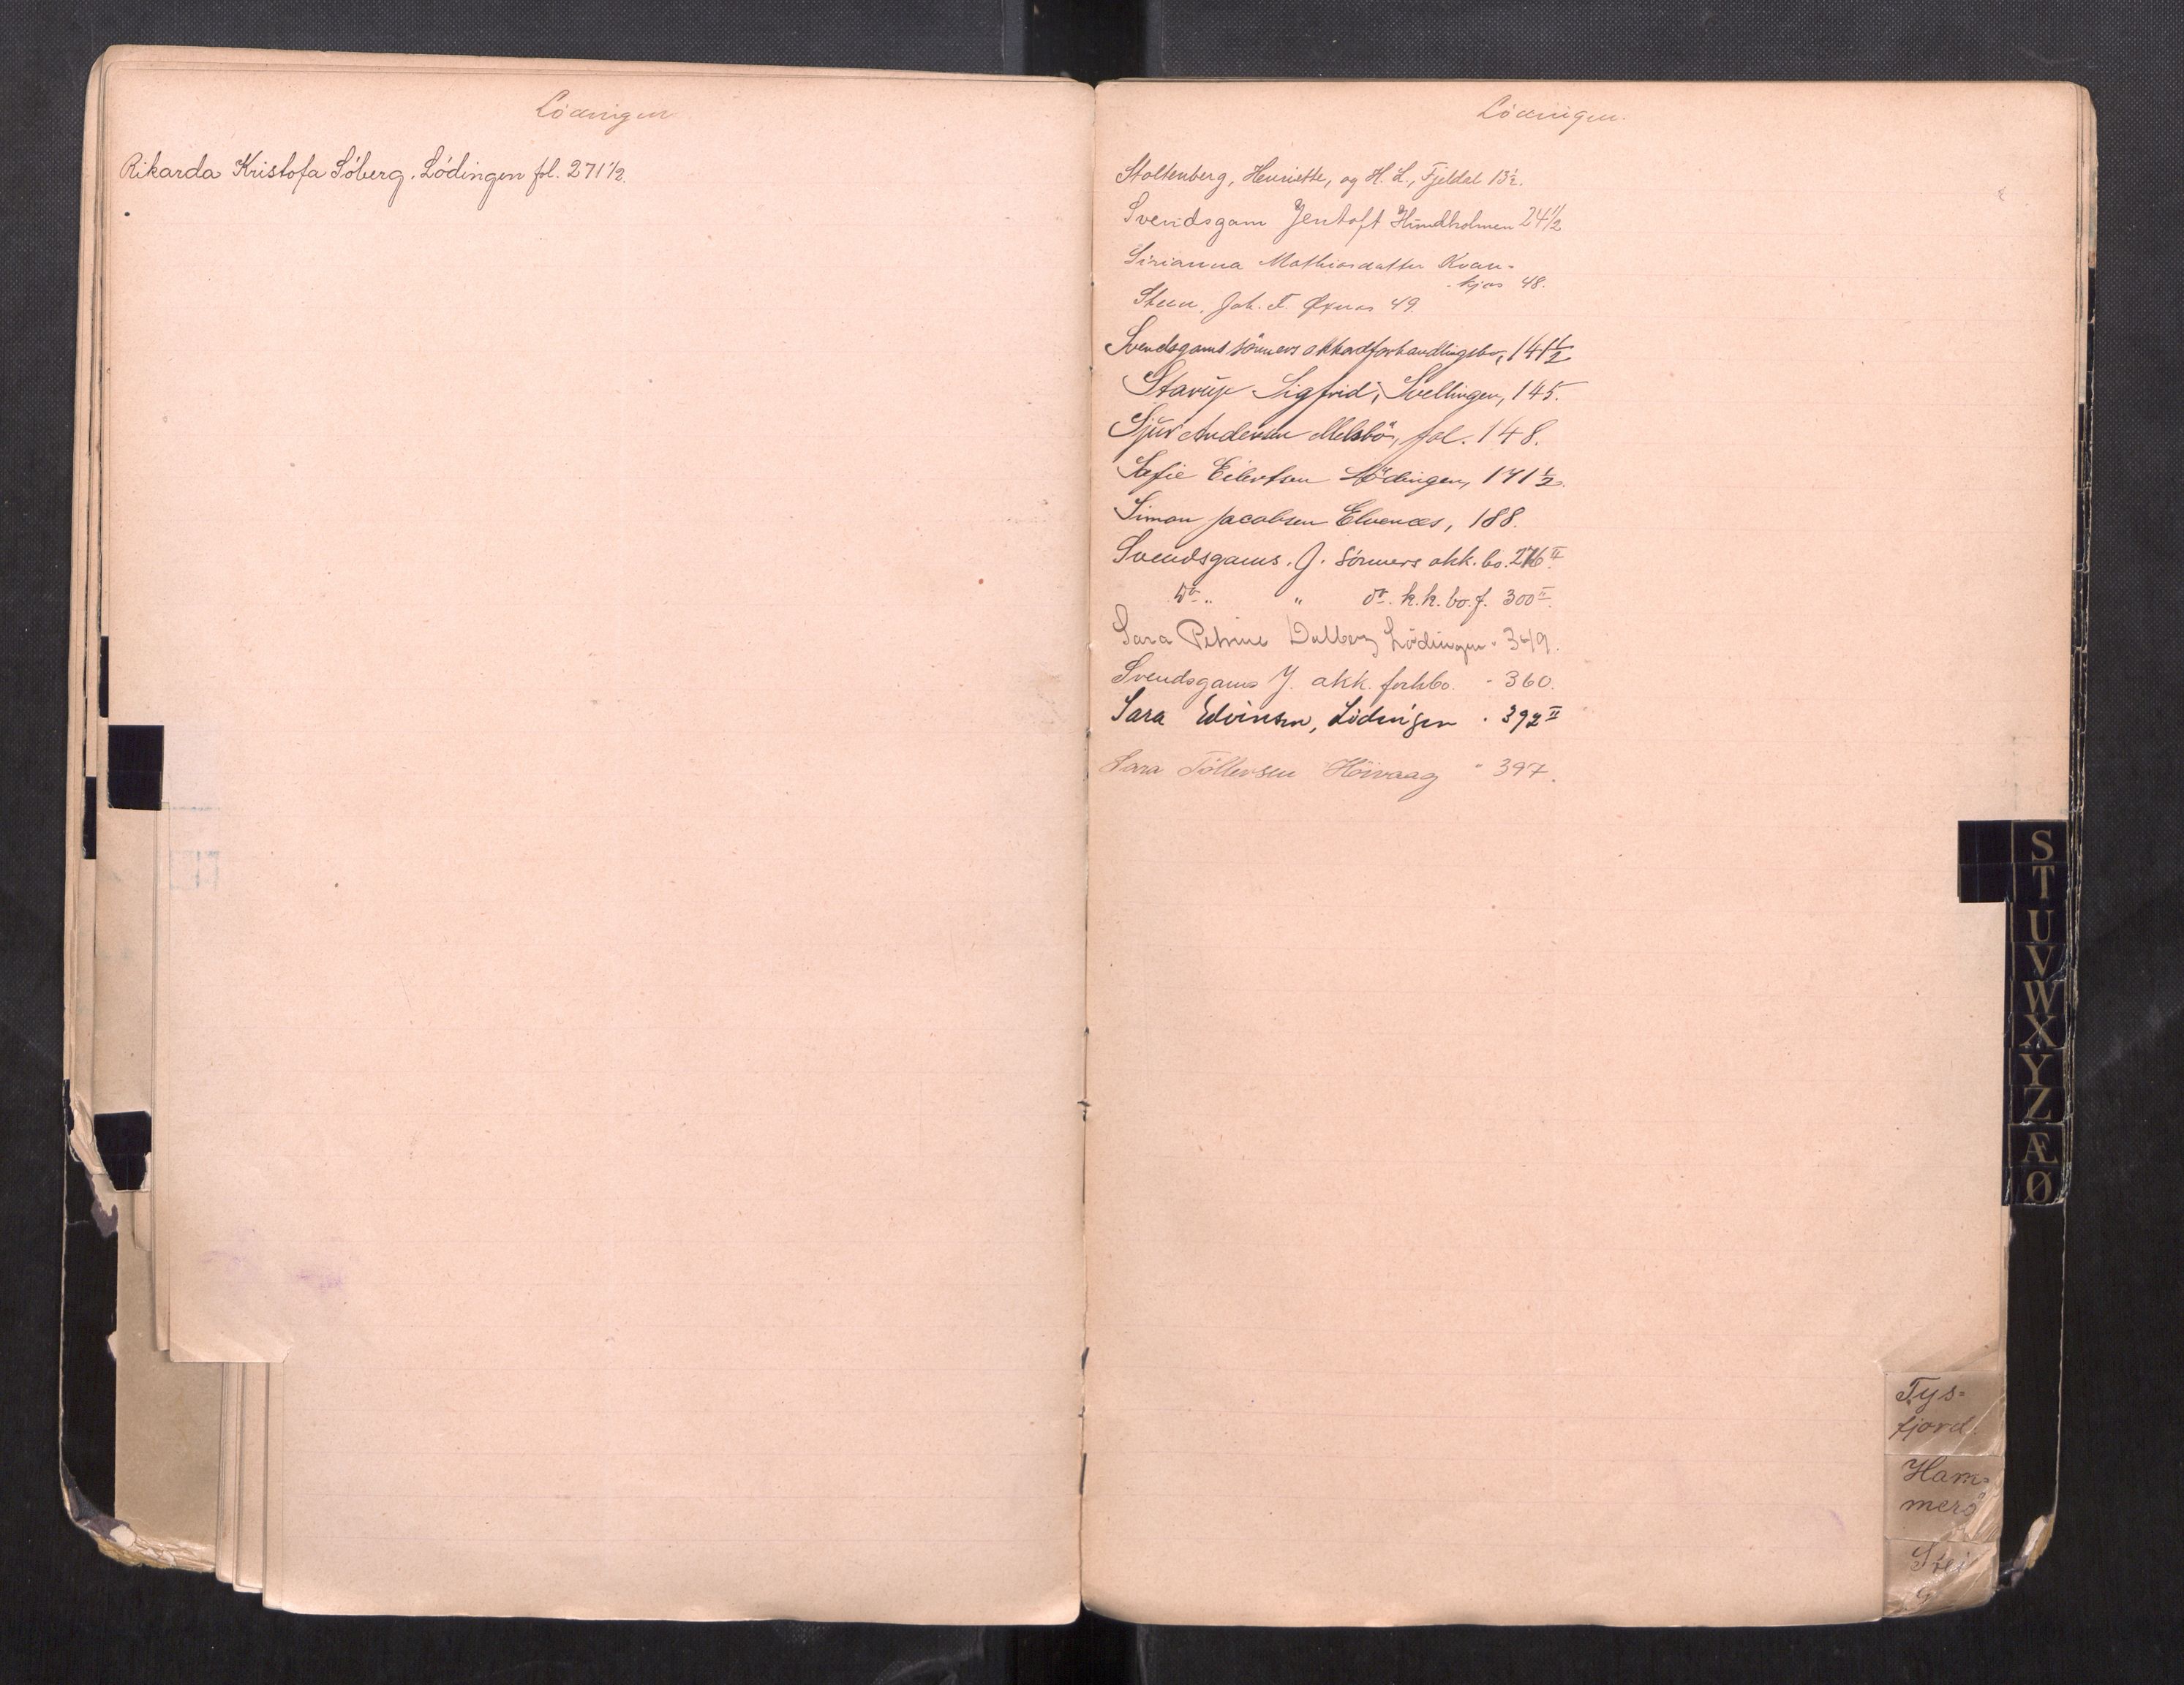 Lödingen
Rikarda Kristofa Söberg, Lödingen fol. 271 1/2.
Lödingen.
Stoltenberg, Henriette, og H. L., Fjeldal 13 1/2.
Svendsgam Jentoft Hundholmen 24 1/2
Sirianna Mathiasdatter Kvan-
-kjos 48.
Steen, Joh. F. Øxnes 49.
Svendsgams sönners akkordforhandlingsbo, 141 1/2
Starup Sigfrid, Svellingen, 145.
Sjur Andersen Melsbö, fol. 148.
Sefie Eilertsen Lödingen, 171 1/2.
Simon Jacobsen Elvenæs, 188.
Svendsgams. J. Sönners akk. bo. 276 II.
Do " " do. k.k. bo. f. 300 II.
Sara Petrine Dalberg Lödingen " 349.
Svendsgams J. akk. forh.bo. " 360.
Sara Edvinsen, Lödingen " 392 II
Sara Töllevsen Höivaag " 397.
S
T
U
V
W
X
Y
Z
Æ
Ø
Tys=
fjord.
Ham=
merö